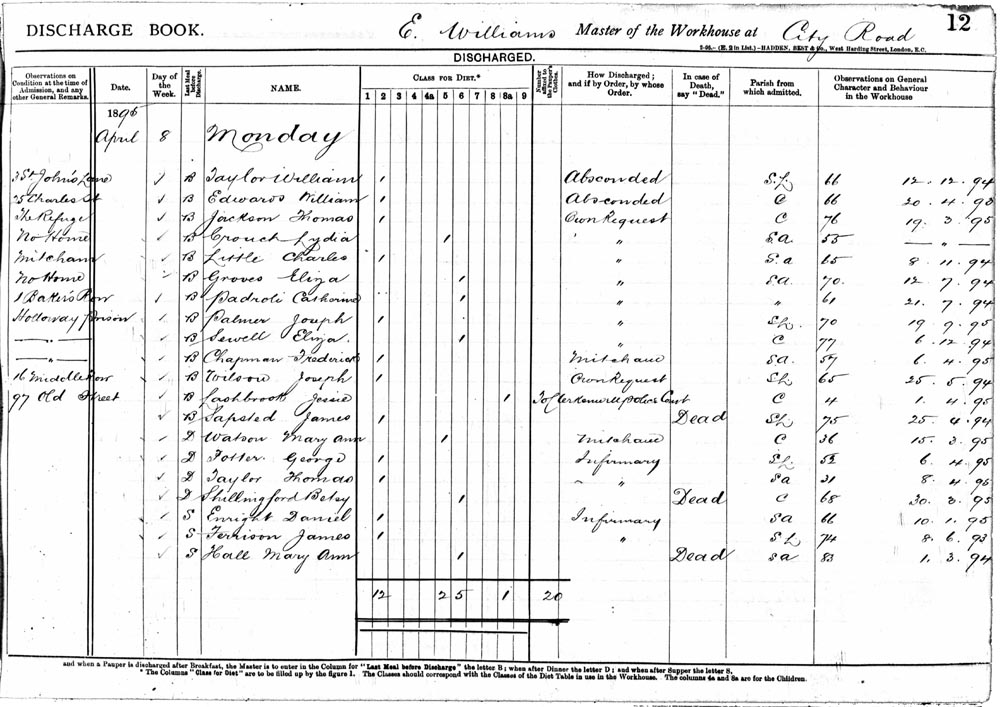 DISCHARGE BOOK. E. Williams Master of the Workhouse at City Road 12
2-95.—(E. 2 in List.)—HADDEN, BEST & Co., West Harding Street, London, E.C.
DISCHARGED.
Observations on Condition at the time of Admission, and any other General Remarks. Date. Day of the Week. Last Meal before Discharge. NAME. CLASS FOR DIET.* Number affixed to the Pauper's Clothes. How Discharged; and if by Order, by whose Order. In case of Death, say "Dead." Parish from which admitted. Observations on General Character and Behaviour in the Workhouse
1 2 3 4 4a 5 6 7 8 8a 9
1895
April 8 Monday
3 St John's Lane ✓ B Taylor William 1 Absconded S.L 66 12. 12. 94
25 Charles St ✓ B Edwards William 1 Absconded C 66 20. 4. 93
The Refuge ✓ B Jackson Thomas 1 Own Request C 76 19. 3. 95
No Home ✓ B Crouch Lydia 1 " S.a. 55 — " —
Mitcham ✓ B Little Charles 1 " S.a 65 8. 11. 94
No Home ✓ B Groves Eliza 1 " S.a 70. 12. 7. 94
1 Baker's Row ✓ B Padroli Catherine 1 " " 61 21. 7. 94
Holloway Prison ✓ B Palmer Joseph 1 " S.L. 70 19.
— " — ✓ B Sewell Eliza. 1 " C 77 6. 12. 94
— " — ✓ B Chapman Frederick 1 Mitcham S.a. 59 6. 4. 95
16 Middle Row ✓ B Wilson Joseph 1 Own Request S.L 65 25. 5. 94
97 Old Street ✓ B Cashbrook Jessie 1 To Clerkenwell Police Court C 4 1. 4. 95
✓ B Sapsted James 1 Dead S.L 75 25. 4. 94
✓ D Watson Mary Ann 1 Mitcham C 36 15. 3. 95
✓ D Foster George 1 Infirmary S.L 52 6. 4. 95
✓ D Taylor Thomas 1 " " S.a 31 8. 4. 95
✓ D Shillingford Betsy 1 Dead C 68 30. 3. 95
✓ S Enright Daniel 1 Infirmary S.a 66 10. 1. 95
✓ S Ferrison James 1 " S.L 74 8. 6. 93
✓ S Hall Mary Ann 1 Dead S.a 83 1. 3. 94
12 2 5 1 20
and when a Pauper is discharged after Breakfast, the Master is to enter in the Column for "Last Meal before Discharge" the letter B; when after Dinner the letter D; and when after Supper the letter S.
* The Columns "Class for Diet" are to be filled up by the figure 1. The Classes should correspond with the Classes of the Diet Table in use in the Workhouse. The columns 4a and 8a are for the Children.